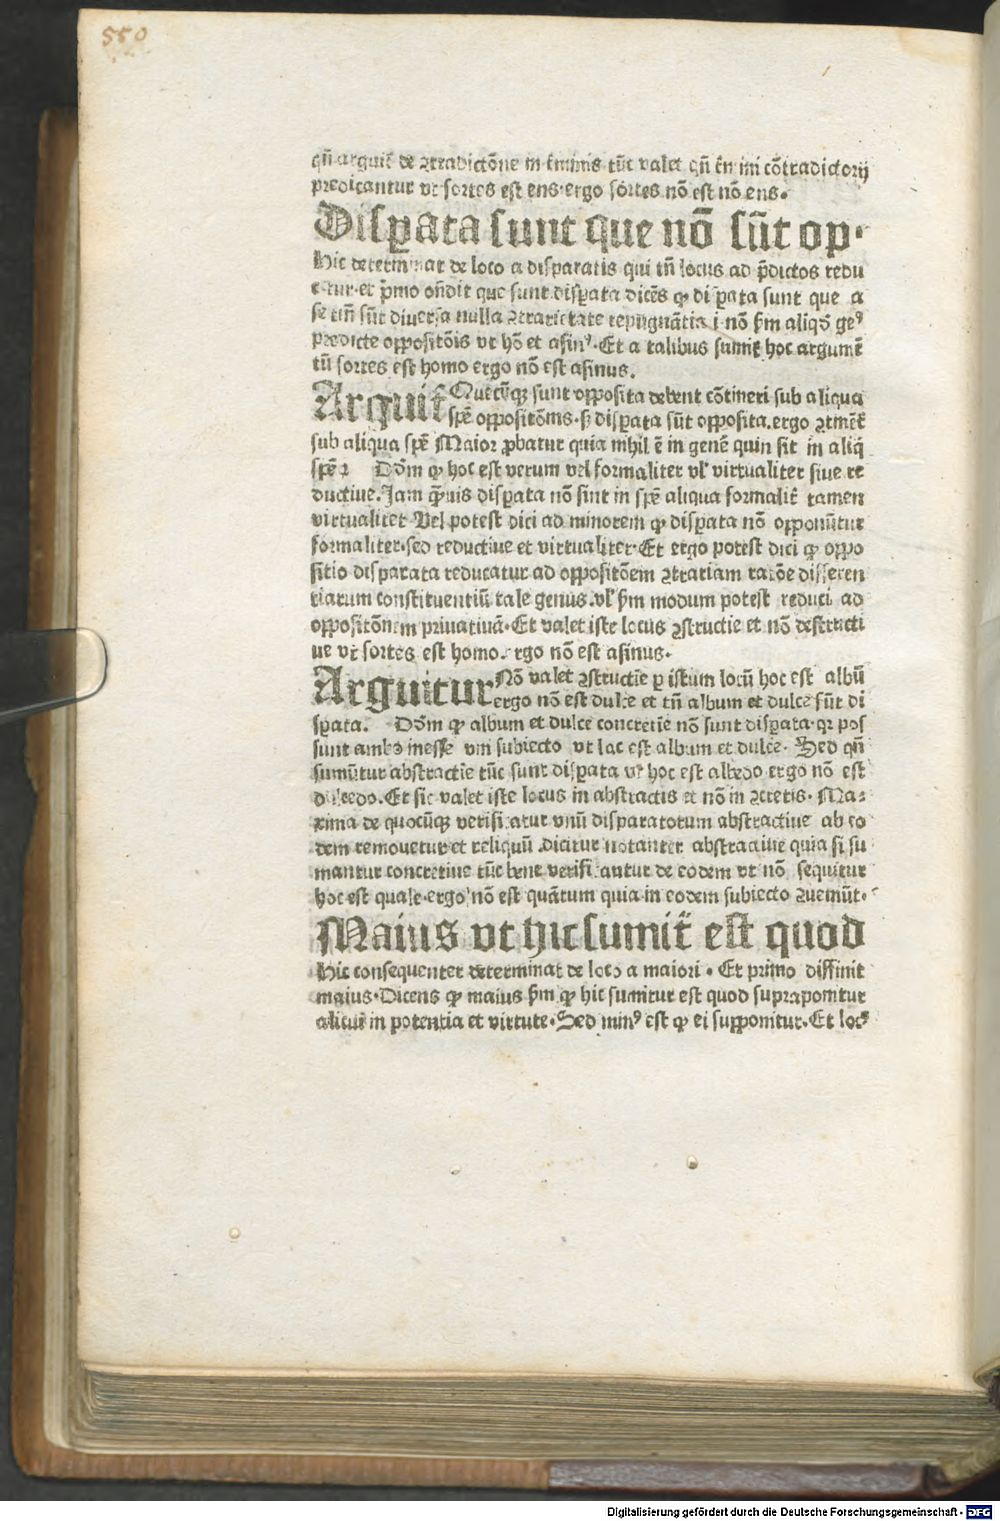 550
qn̄ arguit̄ de ꝯtradictōne in t̄minis tūc valet qn̄ t̄n im cōtradictorij
predicantur vt sortes est ens ergo sortes nō est nō ens.
Disꝑata sunt que nō sūt op.
Hic determinat de loco a disparatis qui tn̄ locus ad p̄dictos redu
citur et p̄mo on̄dit que sunt disꝑata dicēs ꝙ disꝑata sunt que a
se tm̄ sūt diuersa nulla ꝯtrarietate repugnātia i nō ẜm aliqd̄ geꝰ
predicte oppositōis vt hō et asinꝰ. Et a talibus sumit̄ hoc argumē
tū sortes est homo ergo nō est asinus.
Arguit̄ Quecūqꝫ sunt opposita debent cōtineri sub aliqua
spē oppositōnis. ſꝫ disꝑata sūt opposita. ergo ꝯtinēt̄
sub aliqua spē Maior ꝓbatur quia nihil ē in genē quin sit in aliq̄
spē ꝛ Dōm ꝙ hoc est verum vel formaliter vl̓ virtualiter siue re
ductiue. Jam q̄uis disꝑata nō sint in spē aliqua formalit̄ tamen
virtualiter Vel potest dici ad minorem ꝙ disꝑata nō opponūtur
formaliter. sed reductiue et virtualiter. Et ergo potest dici ꝙ oppo
sitio disparata reducatur ad oppositōem ꝯtrariam ratōe differen
tiarum constituentiū tale genus. vl̓ ẜm modum potest reduci ad
oppositōnem priuatiuā. Et valet iste locus ꝯstructie et nō destructi
ue vt sortes est homo. ergo nō est asinus.
Arguitur Nō valet ꝯstructīe ꝑ istum locū hoc est albū
ergo nō est dulce et tn̄ album et dulce sūt di
sꝑata. Dōm ꝙ album et dulce concretīe nō sunt disꝑata. qꝛ pos
sunt ambo inesse vni subiecto vt lac est album et dulce. Sed qn̄
sumūtur abstractīe tūc sunt disꝑata vt hoc est albedo ergo nō est
dulcedo. Et sic valet iste locus in abstractis et nō in ꝯcretis. Ma⸗
xima de quocūqꝫ verificatur vnū disparatorum abstractiue ab eo
dem remouetur et reliquū .Dicitur notanter abstractiue quia si su
mantur concretiue tūc bene verificantur de eodem vt nō sequitur
hoc est quale. ergo nō est quātum quia in eodem subiecto ꝯueniūt.
Maius vt hic sumit̄ est quod
Hic consequenter determinat de loco a maiori. Et primo diffinit
maius. Dicens ꝙ maius ẜm ꝙ hic sumitur est quod supraponitur
alicui in potentia et virtute. Sed minꝰ est ꝙ ei supponitur. Et locꝰ
Digitalisierung gefördert durch die Deutsche Forschungsgemeinschaft - DFG